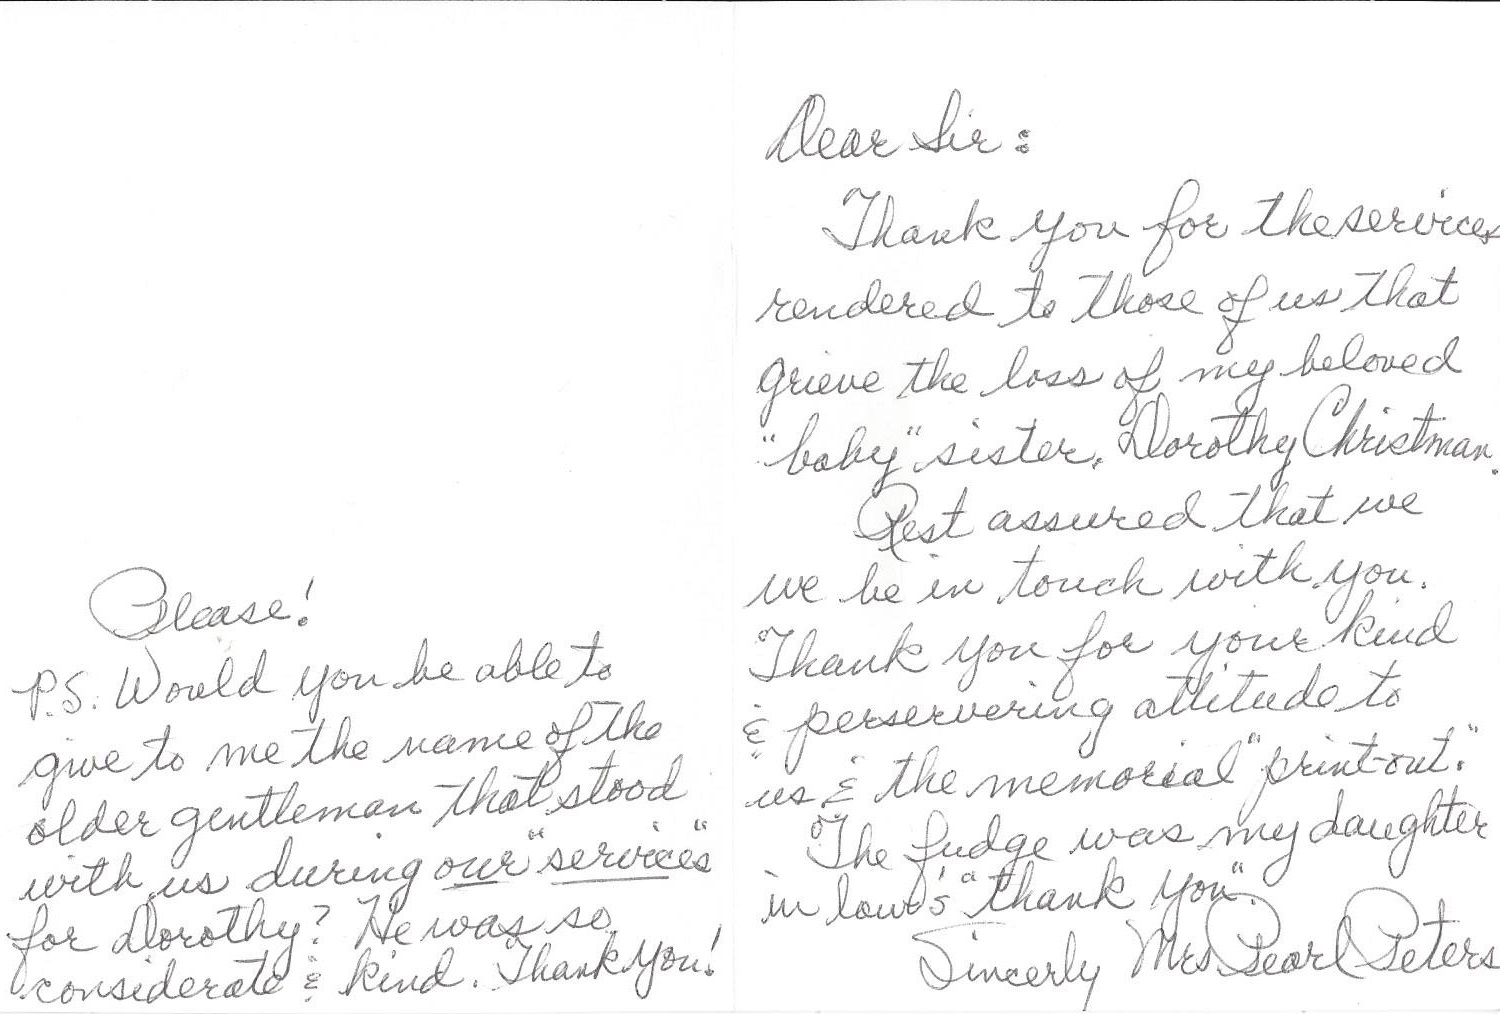 Dear Sir:
Thank you for the services
rendered to those of us that
grieve the loss of my beloved
"baby" sister, Dorothy Christman.
Rest assured that we
we be in touch with you.
Thank you for your kind
& perservering attitude to
"us" & the memorial "print-out."
The fudge was my daughter
in law's "thank you".
Sincerly Mrs Pearl Peters
Please!
P.S. Would you be able to
give to me the name of the
older gentleman that stood
with us during our "services"
for Dorothy? He was so
considerate & kind. Thank you!